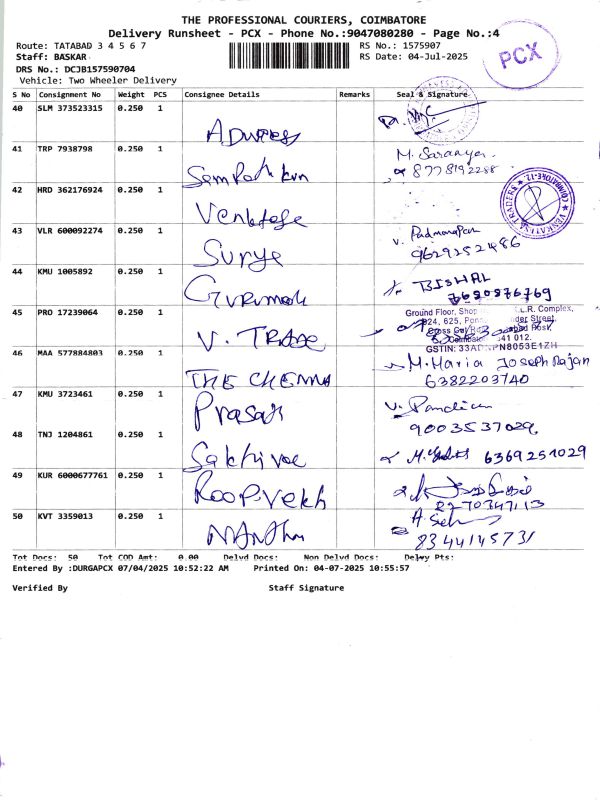 THE PROFESSIONAL COURIERS, COIMBATORE
Delivery Runsheet - PCX - Phone No.:9047080280 - Page No.:4
Route: TATABAD 3 4 5 6 7
Staff: BASKAR
DRS No.: DCJB157590704
Vehicle: Two Wheeler Delivery
RS No.: 1575907
RS Date: 04-Jul-2025
PCX
S No Consignment No Weight PCS Consignee Details Remarks Seal & Signature
40 SLM 373523315 0.250 1
41 TRP 7938798 0.250 1 M. Saranya. 8778192288
42 HRD 362176924 0.250 1 Venkatesa
VENKATESA TRADERS ★ COIMBATORE-12. ★
43 VLR 600092274 0.250 1 Surya V. Padmanapan 9629252486
44 KMU 1005892 0.250 1 BISHAL 7680876769
45 PRO 17239064 0.250 1 V. TRADE
Ground Floor, Shop L.R. Complex,
Street,
Cross Cut
641 012.
46 MAA 577884803 0.250 1 THE CHENNA M. Maria Joseph Rajan 6382203740
47 KMU 3723461 0.250 1 Prasad V. Pandian 9003537029
48 TNJ 1204861 0.250 1 Sakthivel 6369251029
49 KUR 6000677761 0.250 1 Roopvekh
50 KVT 3359013 0.250 1 8344145731
Tot Docs: 50 Tot COD Amt: 0.00 Delvd Docs: Non Delvd Docs: Delvy Pts:
Entered By :DURGAPCX 07/04/2025 10:52:22 AM Printed On: 04-07-2025 10:55:57
Verified By Staff Signature